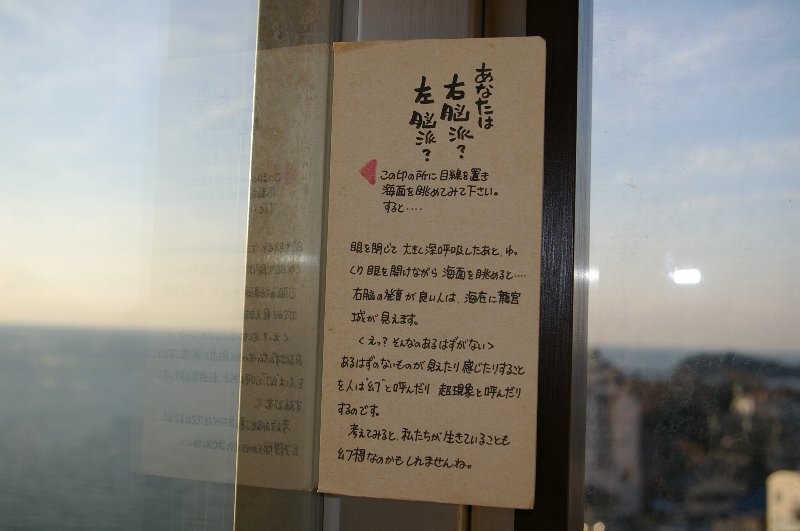 あなたは
右脳派?
左脳派?
この印の所に目線を置き
海面を眺めてみて下さい。
すると‥‥
眼を閉じて 大きく深呼吸したあと、ゆっ
くり眼を開けながら 海面を眺めると‥‥
右脳の発育が良い人は、海底に龍宮
城が見えます。
<えっ? そんなのあるはずがない>
あるはずのないものが見えたり感じたりすること
を人は"幻"と呼んだり 超現象と呼んだり
するのです。
考えてみると、私たちが生きていることも
幻想なのかもしれませんね。